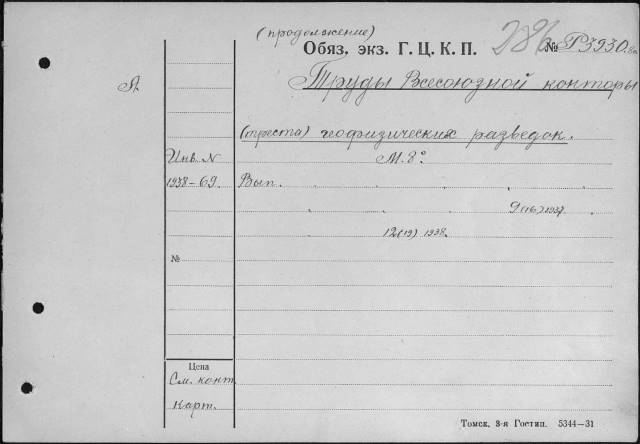 (продолжение)
Обяз. экз. Г. Ц. К. П. 286 № Р3930.
А
Труды Всесоюзной конторы
(треста) геофизических разведок.
Инв. N М. 8°
1938–69. Вып.
9(16) 1937.
12(19) 1938.
№
Цена
См. конт.
Карт.
Томск, 3-я Гостип. 5344—31